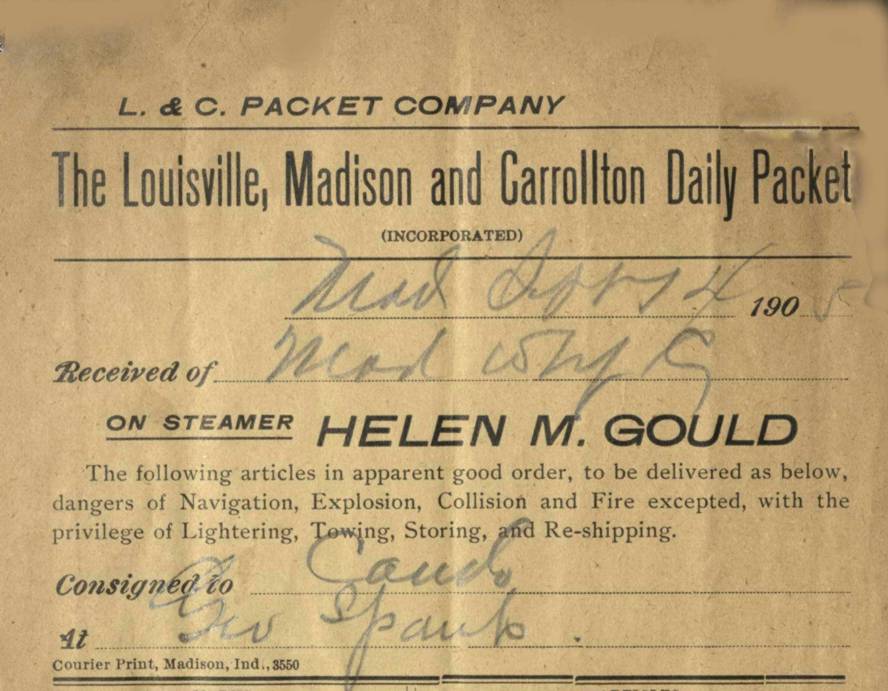 L. & C. PACKET COMPANY
The Louisville, Madison and Carrollton Daily Packet
(INCORPORATED)
Mad 4 190
Received of Mad
ON STEAMER HELEN M. GOULD
The following articles in apparent good order, to be delivered as below,
dangers of Navigation, Explosion, Collision and Fire excepted, with the
privilege of Lightering, Towing, Storing, and Re-shipping.
Consigned to
At Geo
Courier Print, Madison, Ind., 3550